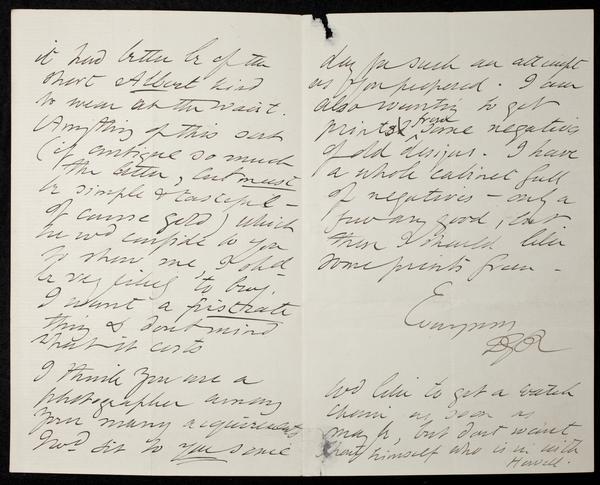 it had better be of the
short Albert kind
to wear at the waist.
Anything of this sort
(if antique so much
the better, but must
be simple & tasteful –
of course gold) which
he wd confide to you
to show me, I shd
be very likely to buy.
I want a firstrate
thing & dont mind
what it costs
I think you are a
photographer among
your many acquirements
I wd sit to you some
day for such an attempt
as you proposed. I am
also wanting to get
prints from some negatives
of old designs. I have
a whole cabinet full
of negatives – only a
few any good, but
these I should like
some prints from –
Ever yours
DGR
wd like to get a watch
chain as soon as
may be, but dont want
himself who is in with
Howell.